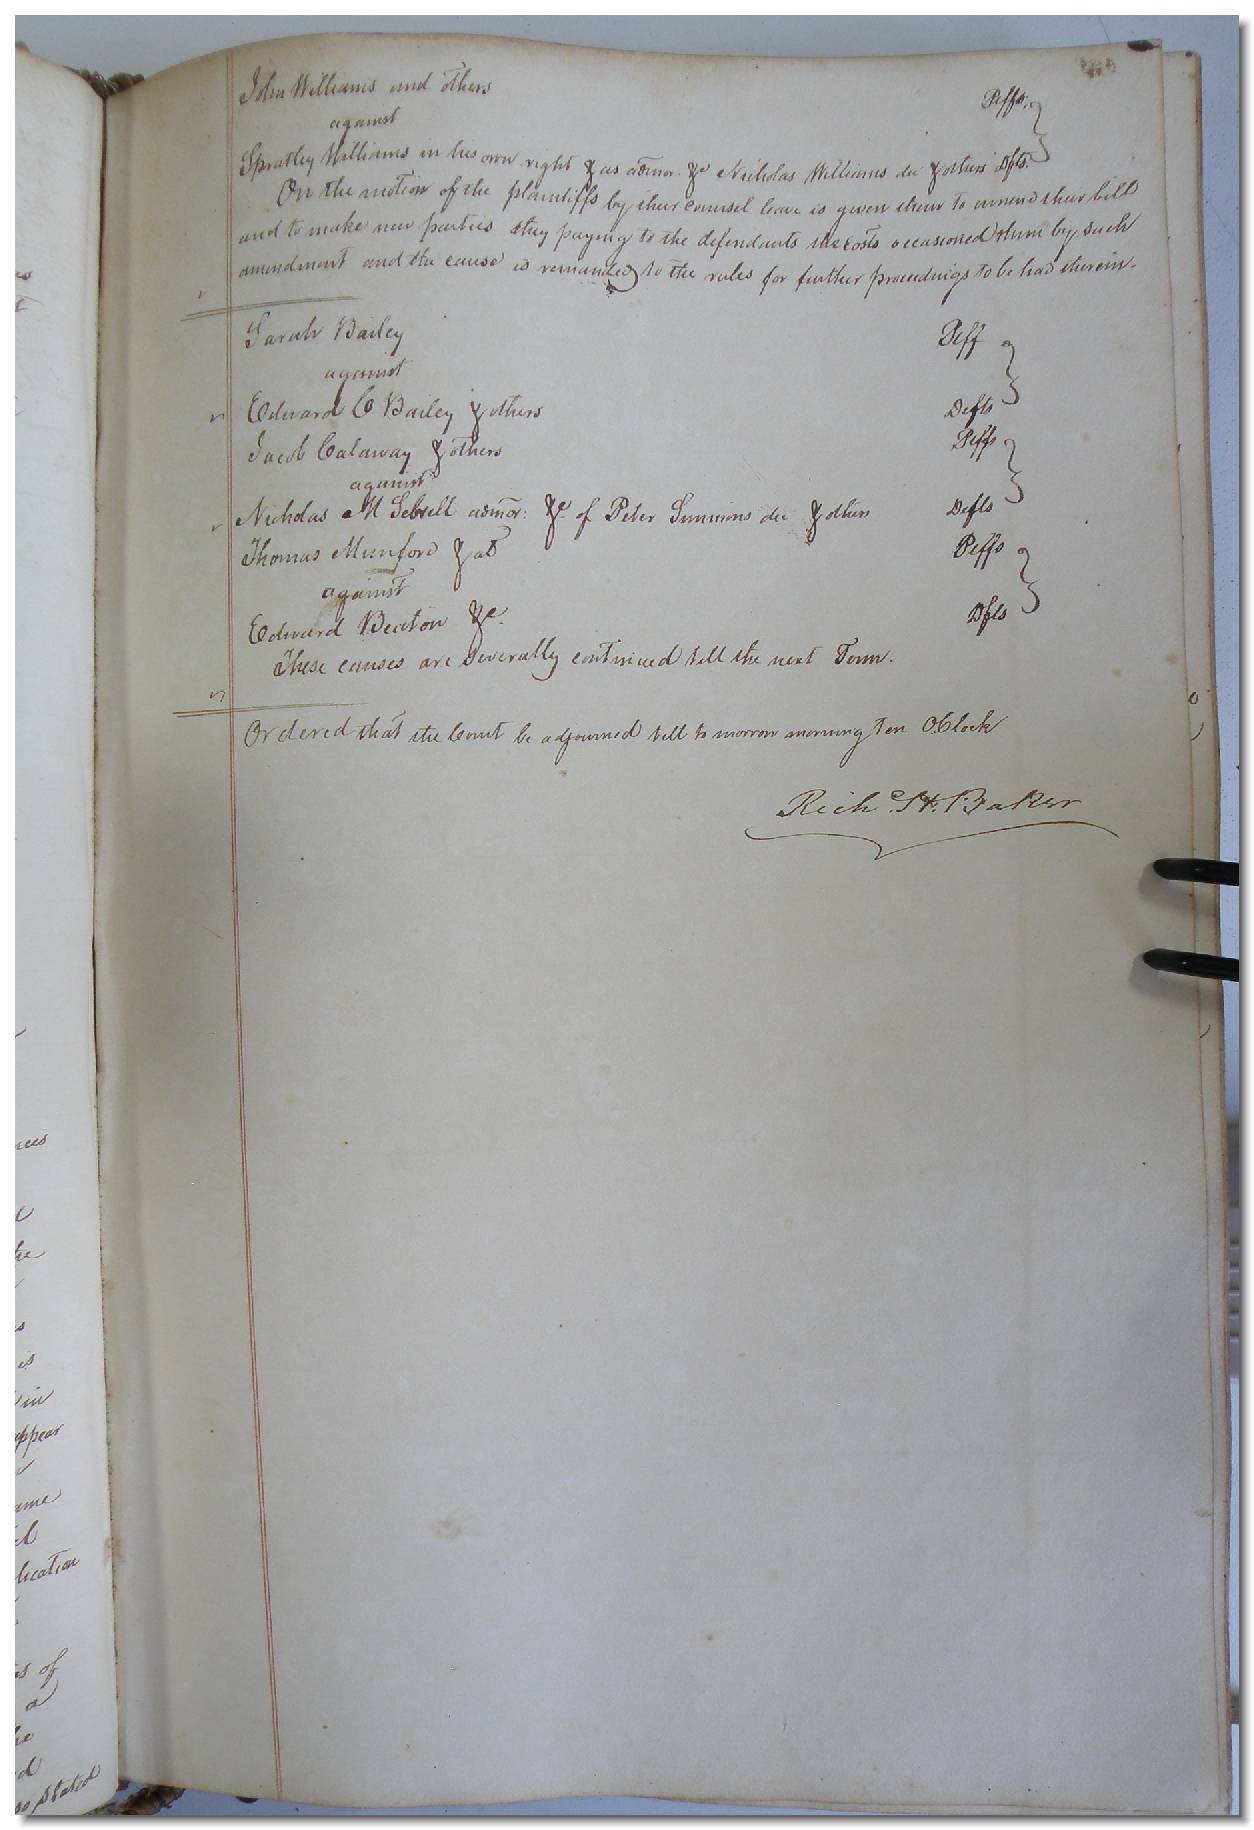 John Williams and others Plffs.
against
Spratley Williams in his own right & as admor. &c Nicholas Williams dec & others Dfts.
On the motion of the plaintiffs by their counsel leave is given them to amend their bill
and to make new parties they paying to the defendants the costs occasioned them by such
amendment and the cause is remanded to the rules for further proceedings to be had therein.
Sarah Bailey Plff
against
Edward C Bailey & others Defts
Jacob Calaway & others Plffs
against
Nicholas M Sebrell admor: &c of Peter Simmons dec & others Defts
Thomas Munford & al Plffs
against
Edward Beaton &c. Dfts
These causes are severally continued till the next Term.
Ordered that the Court be adjourned till to morrow morning ten OClock
Richd. H. Baker
ces
the
is
in
appear
ame
lication
s of
a
so stated